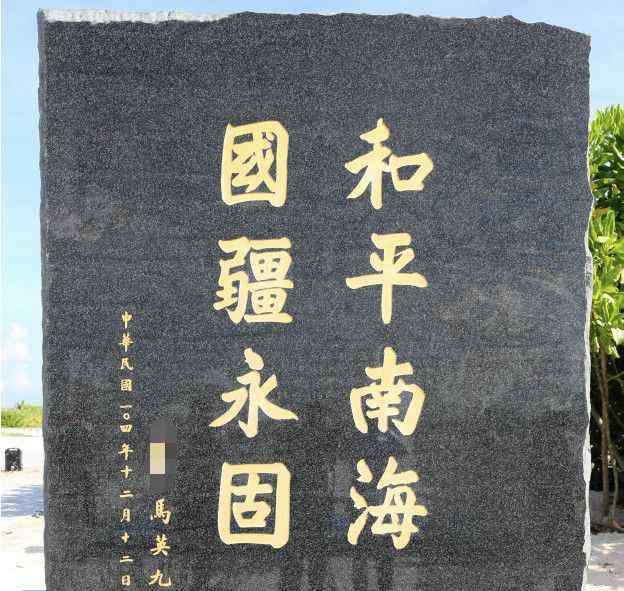 和平南海
國疆永固
馬英九
中華民國一〇四年十二月十二日